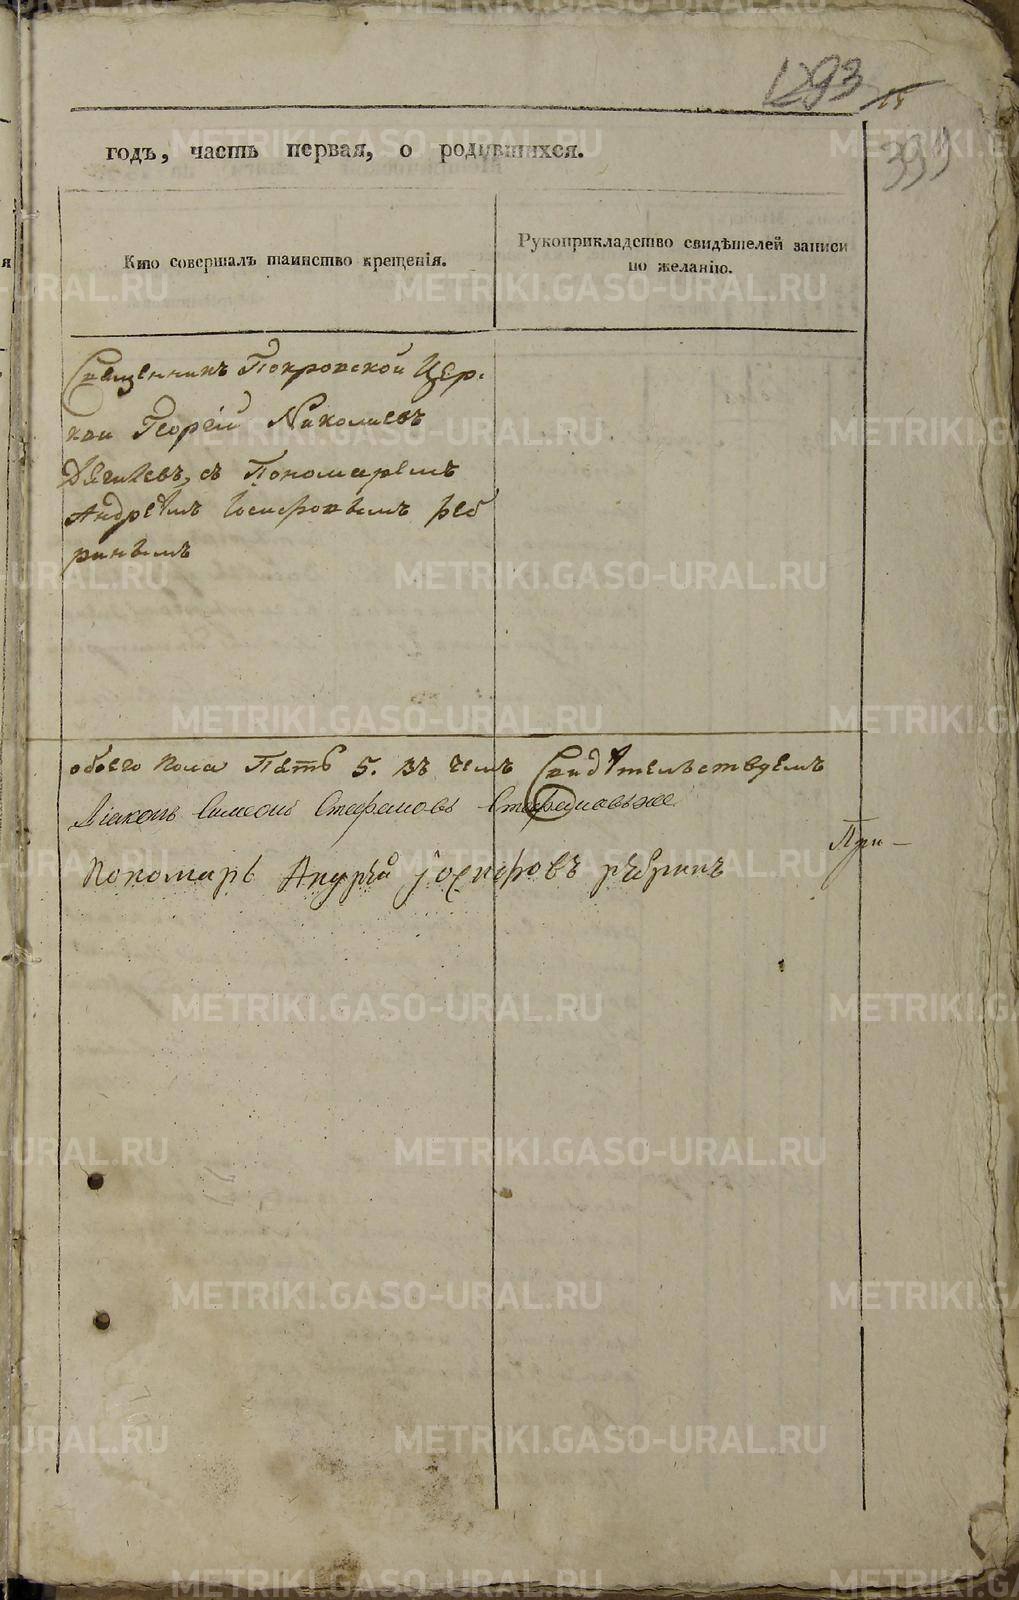 1293
годъ, часть первая, о родившихся.
Кто совершалъ таинство крещенія.
Рукоприкладство свидѣтелей записи
по желанію.
Священникъ Покровской Цер.
кви Георгій Николаевъ
Дягилевъ, съ Пономаремъ
Андреѣмъ Іосифовымъ Реб
ринымъ
обоего пола Пять 5. въ чемъ Свидѣтельствуемъ
Діаконъ Симеонъ Стефановъ
При-
Пономарь Андрѣй Іосифовъ рѣбринъ
METRIKI.GASO-URAL.RU